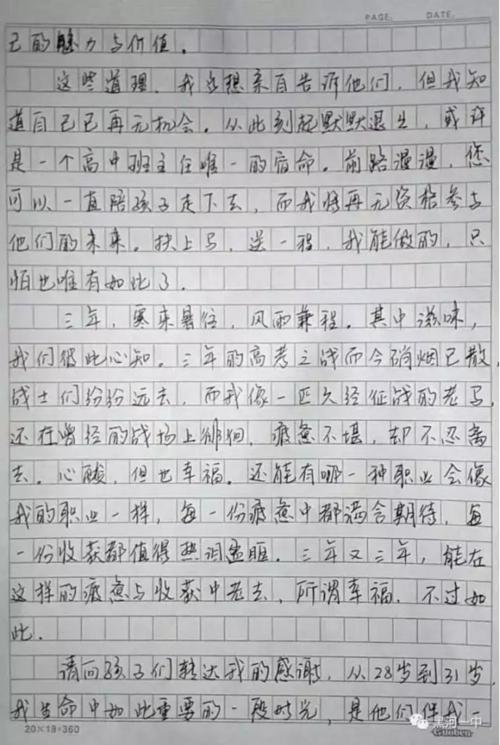 PAGE. DATE.
己的魅力与价值。
这些道理，我多想亲自告诉他们，但我知
道自己已再无机会。从此刻起默默退出，或许
是一个高中班主任唯一的宿命。前路漫漫，您
可以一直陪孩子走下去，而我将再无资格参与
他们的未来。扶上马，送一程，我能做的，只
怕也唯有如此了。
三年，寒来暑往，风雨兼程。其中滋味，
我们彼此心知。三年的高考之战而今硝烟已散，
战士们纷纷远去，而我像一匹久经征战的老马，
还在曾经的战场上徘徊，疲惫不堪，却不忍离
去。心酸，但也幸福。还能有哪一种职业会像
我的职业一样，每一份疲惫中都满含期待，每
一份收获都值得热泪盈眶。三年又三年，能在
这样的疲惫与收获中老去，所谓幸福，不过如
此。
请向孩子们转达我的感谢，从28岁到31岁，
我生命中如此重要的一段时光，是他们伴我一
20×18=360
黑河一中
Guoben